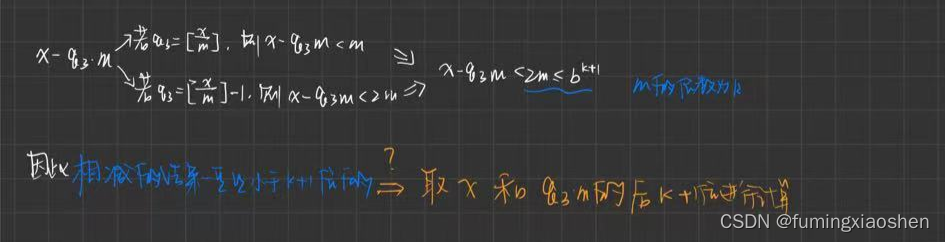 x - q₃·m
若q₃=[x/m], 则 x-q₃m<m
若q₃=[x/m]-1, 则 x-q₃m<2m ⇒ x-q₃m<2m≤bᵏ⁺¹
m的位数为k
因此 相减的结果一定是小于k+1位的 ?⇒ 取 x 和 q₃m的后k+1位进行计算
CSDN @fumingxiaoshen